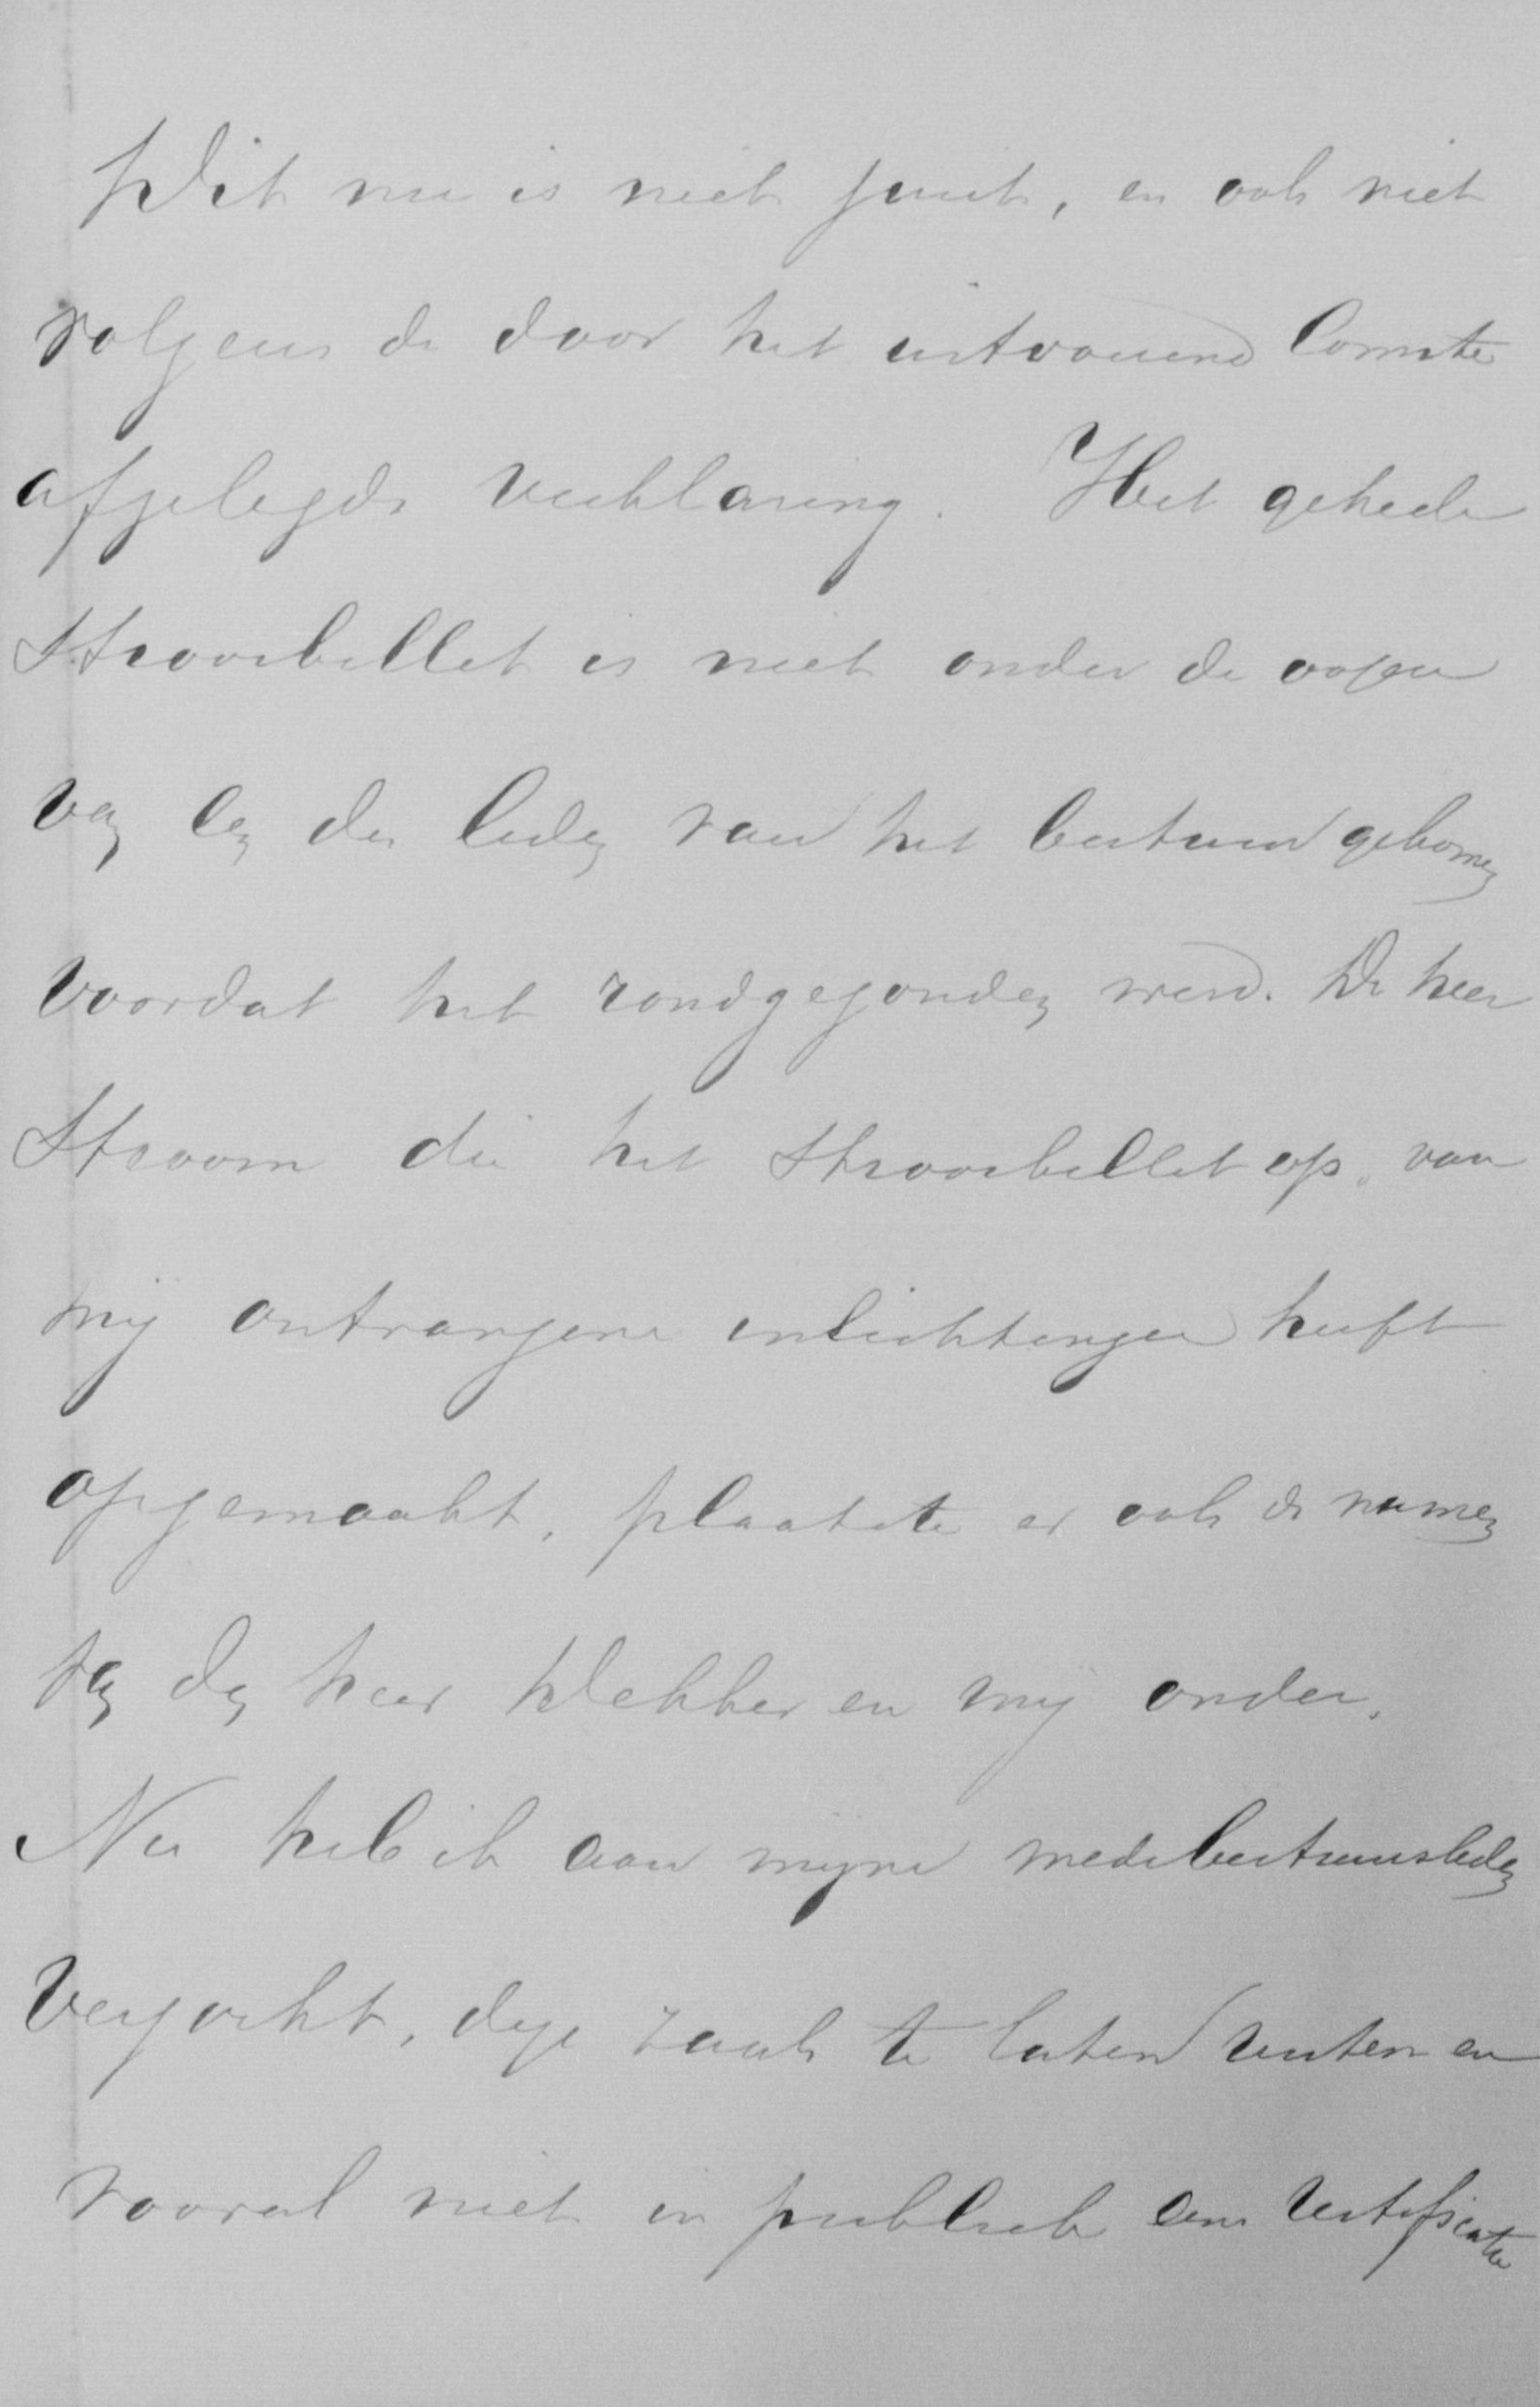 Dit nu is niet juist, en ook niet
volgens de door het uitvoerend Comite
afgelegde verklaring. Het geheele
Strooibillet is niet onder de oogen
van een der leden van het bestuur gekomen
voordat het rondgezonden werd. De heer
Stroom die het Strooibillet op van
mij ontvangene inlichtingen heeft
opgemaakt, plaatste er ook de namen
van den heer Dekker en mij onder.
Nu heb ik aan mijne medebestuursleden
verzocht, deze zaak te laten rusten en
vooral niet in publiek eene rectificatie